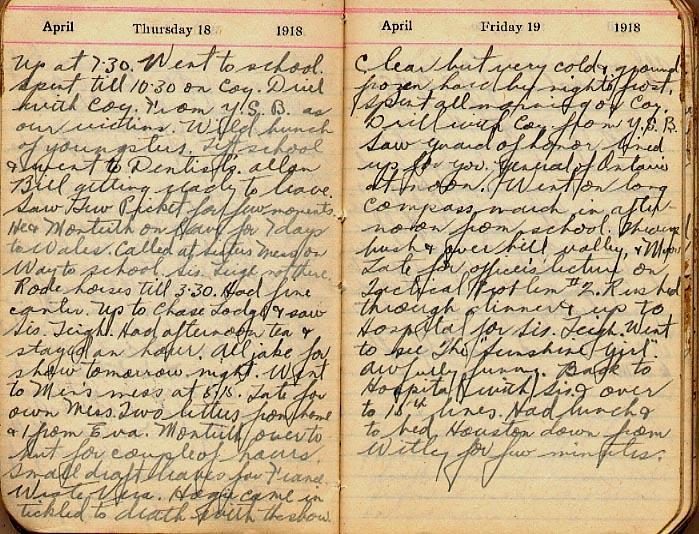 April Thursday 18 1918
Up at 7:30. Went to school.
Spent till 10:30 on Coy. Drill
with Coy. from Y.S.B. as
our victims. Wild bunch
of youngsters. Left school
& went to Dentist's. Allan
Bell getting ready to leave.
Saw Geo Pricket for few moments.
He & Monteith on leave for 7 days
to Wales. Called at Sisters Mess on
Way to school. Sis. Leigh not there.
Rode horses till 3:30. Had fine
canter. Up to Chase Lodge & saw
Sis. Leigh. Had afternoon tea &
stayed an hour. All jake for
show tomorrow night. Went
to Men's mess at 5:15. Late for
own Mess. Two letters from home
& 1 from Eva. Monteith over to
hut for couple of hours.
Small draft leaves for France.
Wrote Vera. Hogg came in
tickled to death with the show.
April Friday 19 1918
Clear but very cold & ground
frozen hard by nights frost.
Spent all morning on Coy.
Drill with Coy from Y.S.B.
Saw guard of honor lined
up for Gov. General of Ontario
at noon. Went on long
compass march in after-
noon from school. Through
bush & over hill, valley, & Moor
Late for officers lecture on
Tactical Problem #2. Rushed
through dinner & up to
Hospital for Sis. Leigh. Went
to see The "Sunshine Girl"
awfully funny. Back to
Hospital with Sis. & over
to 18th lines. Had lunch &
to bed. Houston down from
Witley for few minutes.